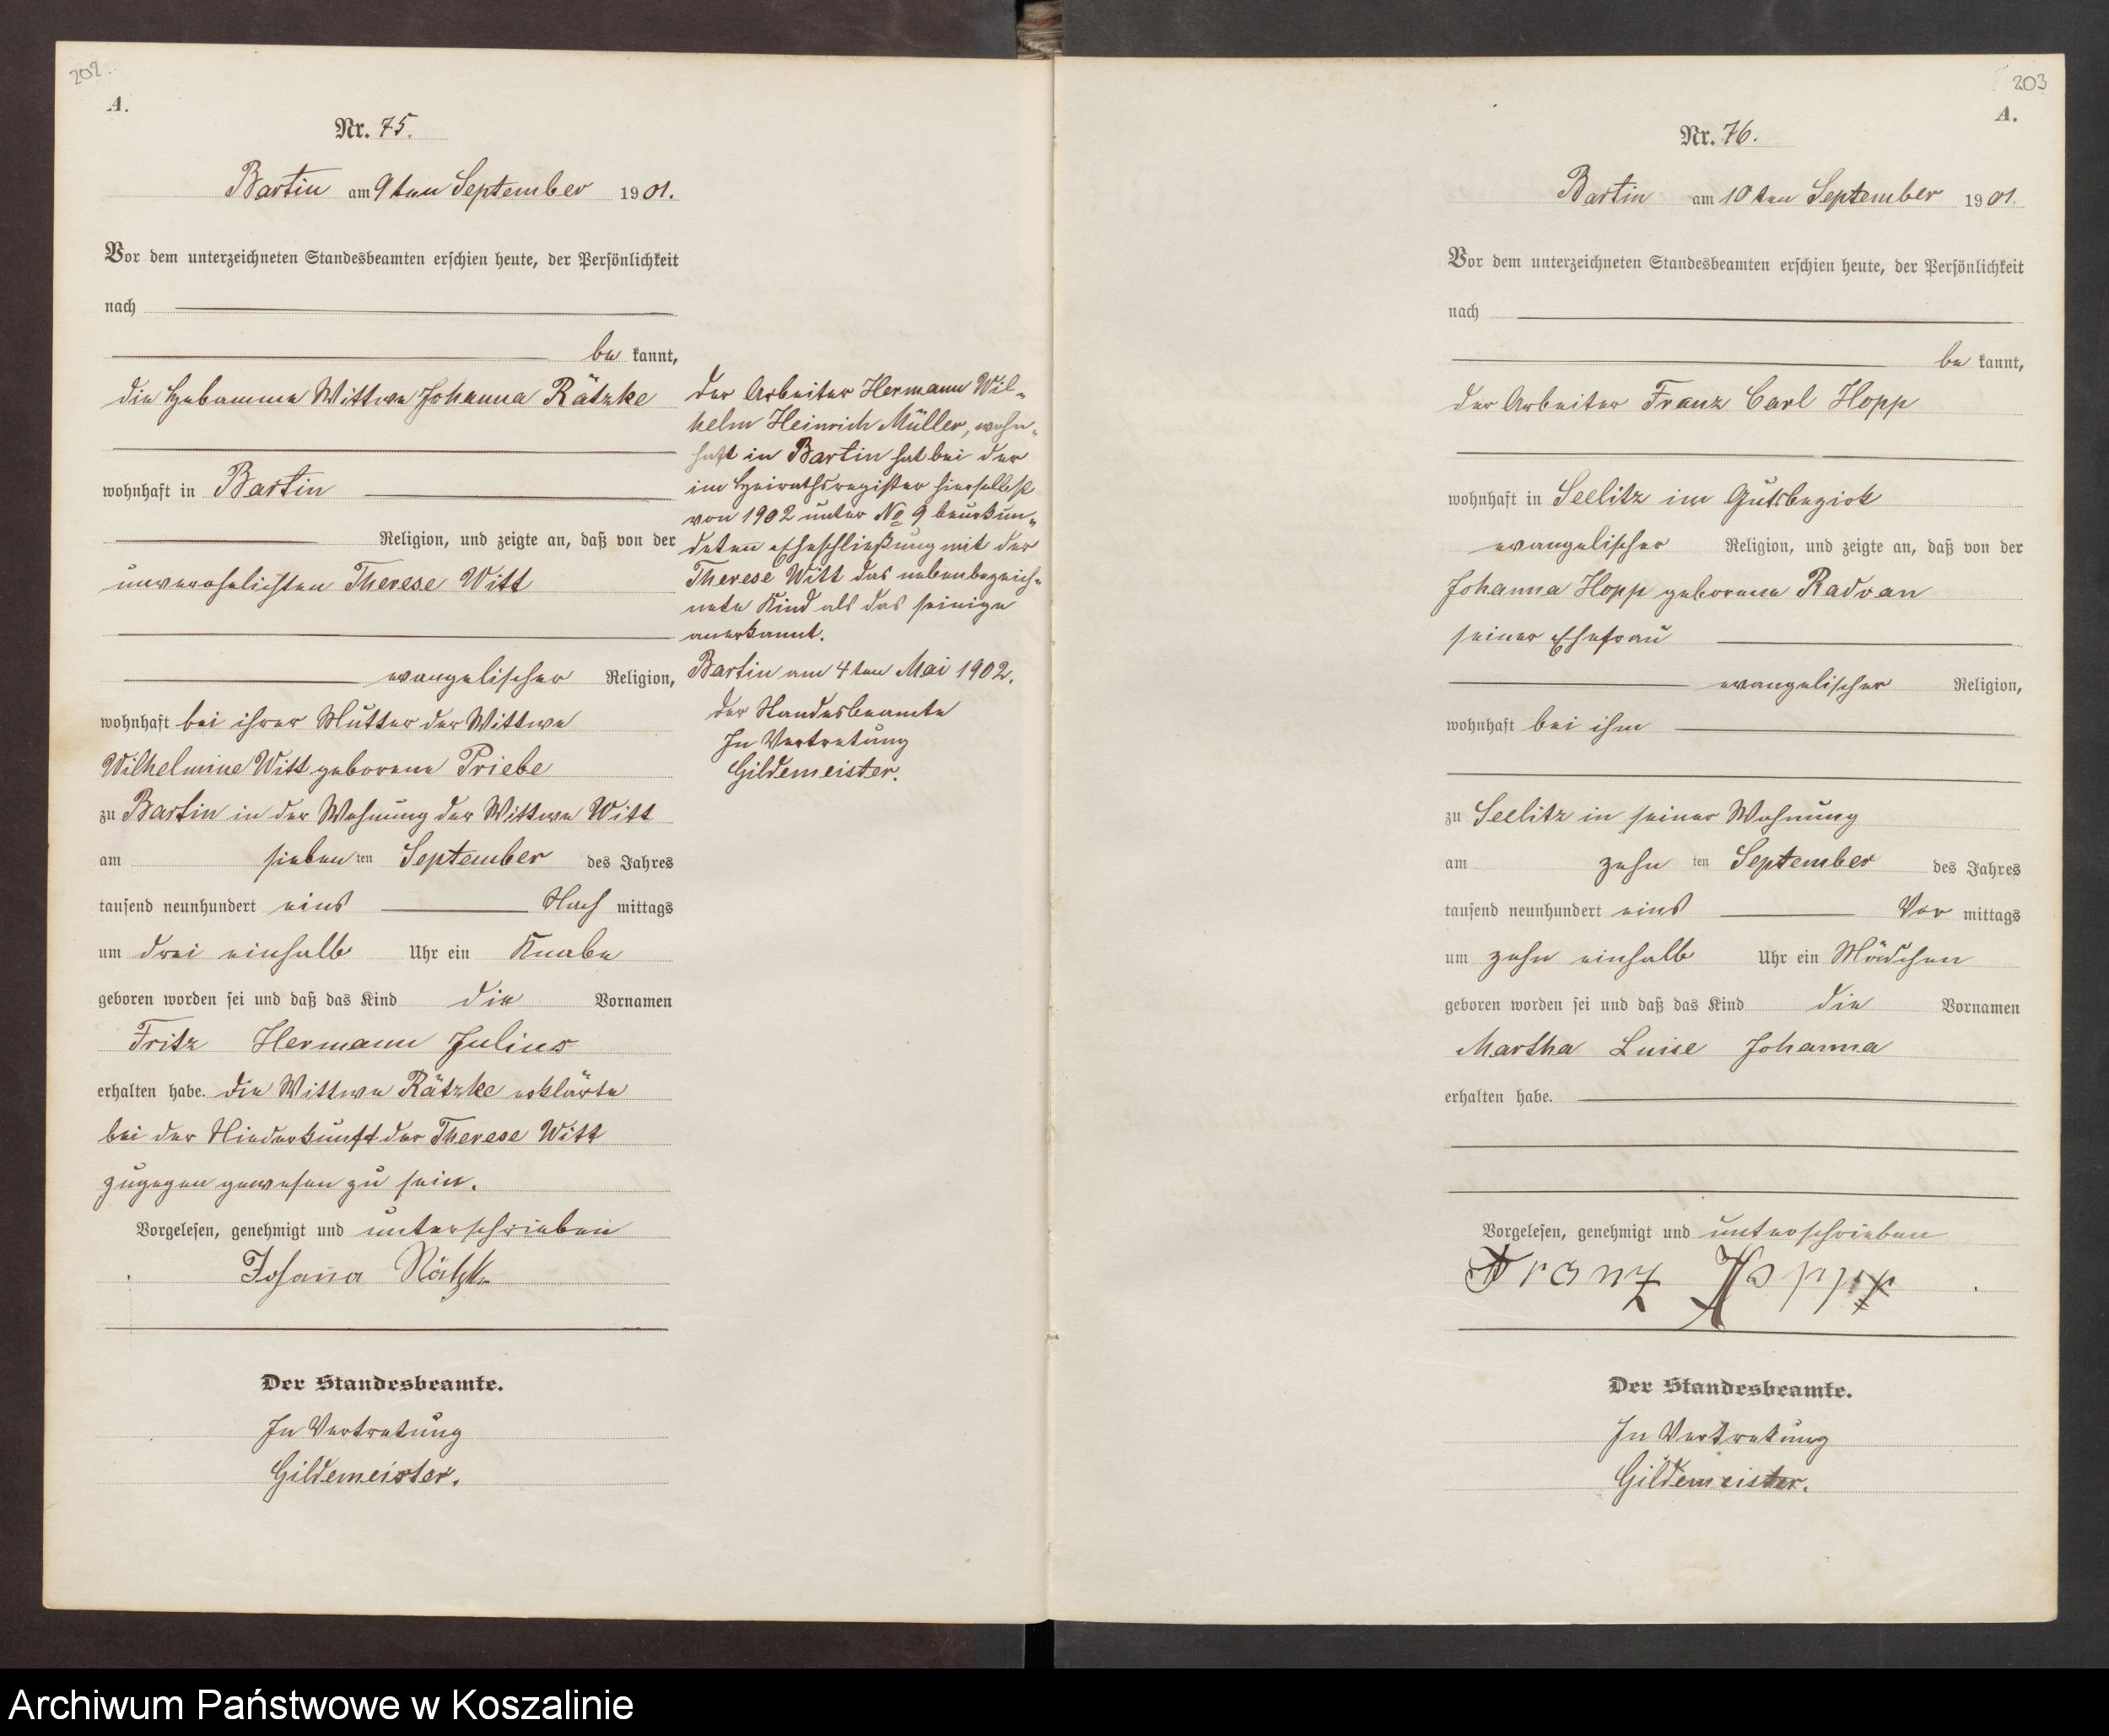 202.
A.
Nr. 75.
Bartin am 9ten September 1901.
Vor dem unterzeichneten Standesbeamten erschien heute, der Persönlichkeit
nach
be kannt,
die Hebamme Wittwe Johanna Rätzke
wohnhaft in Bartin
Religion, und zeigte an, daß von der
unverehelichten Therese Witt
evangelischer Religion,
wohnhaft bei ihrer Mutter der Wittwe
Wilhelmine Witt geborene Priebe
zu Bartin in der Wohnung der Wittwe Witt
am sieben ten September des Jahres
tausend neunhundert eins Nach mittags
um drei einhalb Uhr ein Knabe
geboren worden sei und daß das Kind die Vornamen
Fritz Hermann Julius
erhalten habe. die Wittwe Rätzke erklärte
bei der Niederkunft der Therese Witt
zugegen gewesen zu sein.
Vorgelesen, genehmigt und unterschrieben
Johana Rätzke
Der Standesbeamte.
In Vertretung
Gildemeister.
Der Arbeiter Hermann Wil-
helm Heinrich Müller, wohn-
haft in Bartin hat bei der
im Heirathsregister hierselbst
von 1902 unter No 9 beurkun-
deten Eheschließung mit der
Therese Witt das nebenbezeich-
nete Kind als das seinige
anerkannt.
Bartin am 4ten Mai 1902.
Der Standesbeamte
In Vertretung
Gildemeister.
203
A.
Nr. 76.
Bartin am 10ten September 1901.
Vor dem unterzeichneten Standesbeamten erschien heute, der Persönlichkeit
nach
be kannt,
der Arbeiter Franz Carl Hopp
wohnhaft in Seelitz im Gutsbezirk
evangelischer Religion, und zeigte an, daß von der
Johanna Hopp geborene Radvan
seiner Ehefrau
evangelischer Religion,
wohnhaft bei ihm
zu Seelitz in seiner Wohnung
am zehn ten September des Jahres
tausend neunhundert eins Vor mittags
um zehn einhalb Uhr ein Mädchen
geboren worden sei und daß das Kind die Vornamen
Martha Luise Johanna
erhalten habe.
Vorgelesen, genehmigt und unterschrieben
Franz Hopp
Der Standesbeamte.
In Vertretung
Gildemeister.
Archiwum Państwowe w Koszalinie